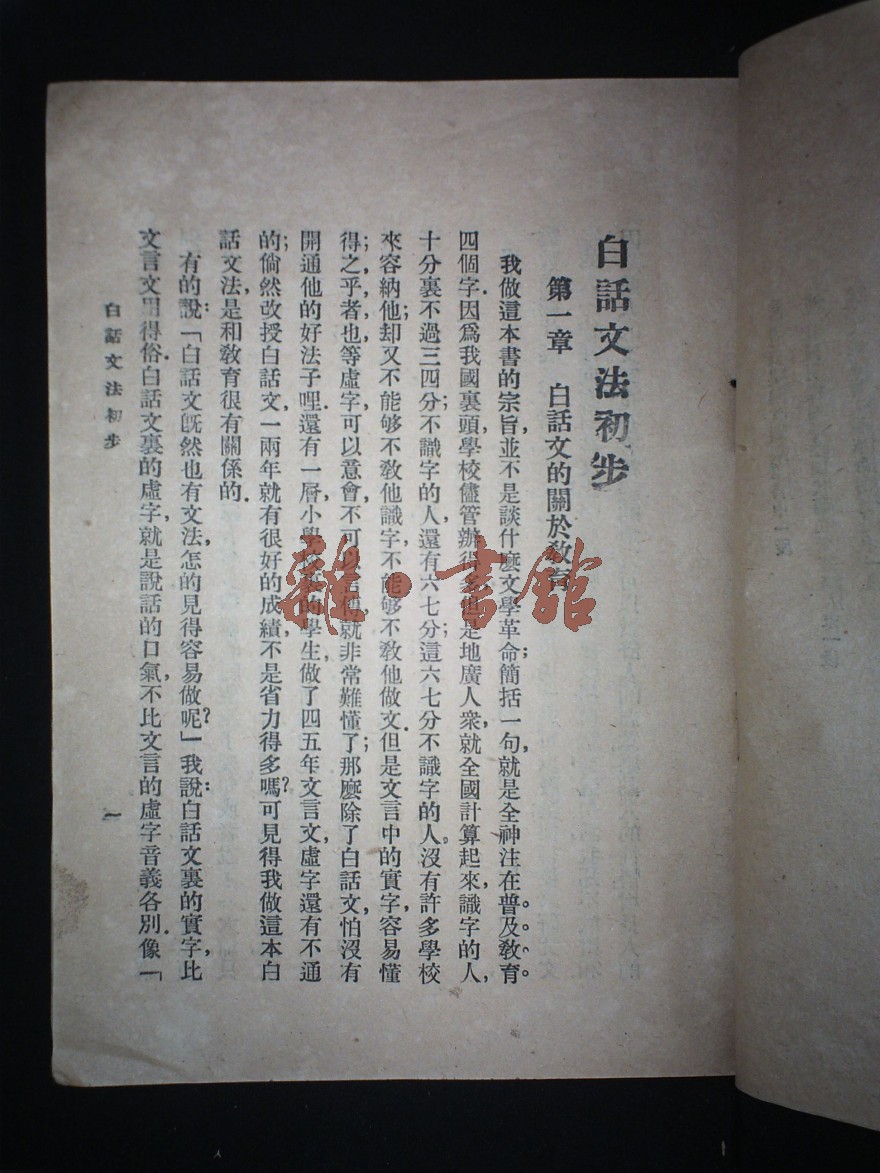 白話文法初步
第一章　白話文的關於教育
我做這本書的宗旨，並不是談什麼文學革命；簡括一句，就是全神注在普及教育。
四個字．因爲我國裏頭，學校儘管辦得多，也是地廣人衆，就全國計算起來，識字的人，
十分裏不過三四分；不識字的人，還有六七分；這六七分不識字的人。沒有許多學校
來容納他；却又不能够不教他識字，不能够不教他做文．但是文言中的實字，容易懂
得；之，乎，者，也，等虛字，可以意會，不可以言傳，就非常難懂了；那麼除了白話文，怕沒有
開通他的好法子哩．還有一層，小學校裏的學生，做了四五年文言文，虛字還有不通
的；倘然改授白話文，一兩年就有很好的成績，不是省力得多嗎？可見得我做這本白
話文法，是和教育很有關係的．
有的說：「白話文旣然也有文法，怎的見得容易做呢？」我說：白話文裏的實字，比
文言文用得俗．白話文裏的虛字，就是說話的口氣，不比文言的虛字，音義各別．像「
白話文法初步
一
雜·書館